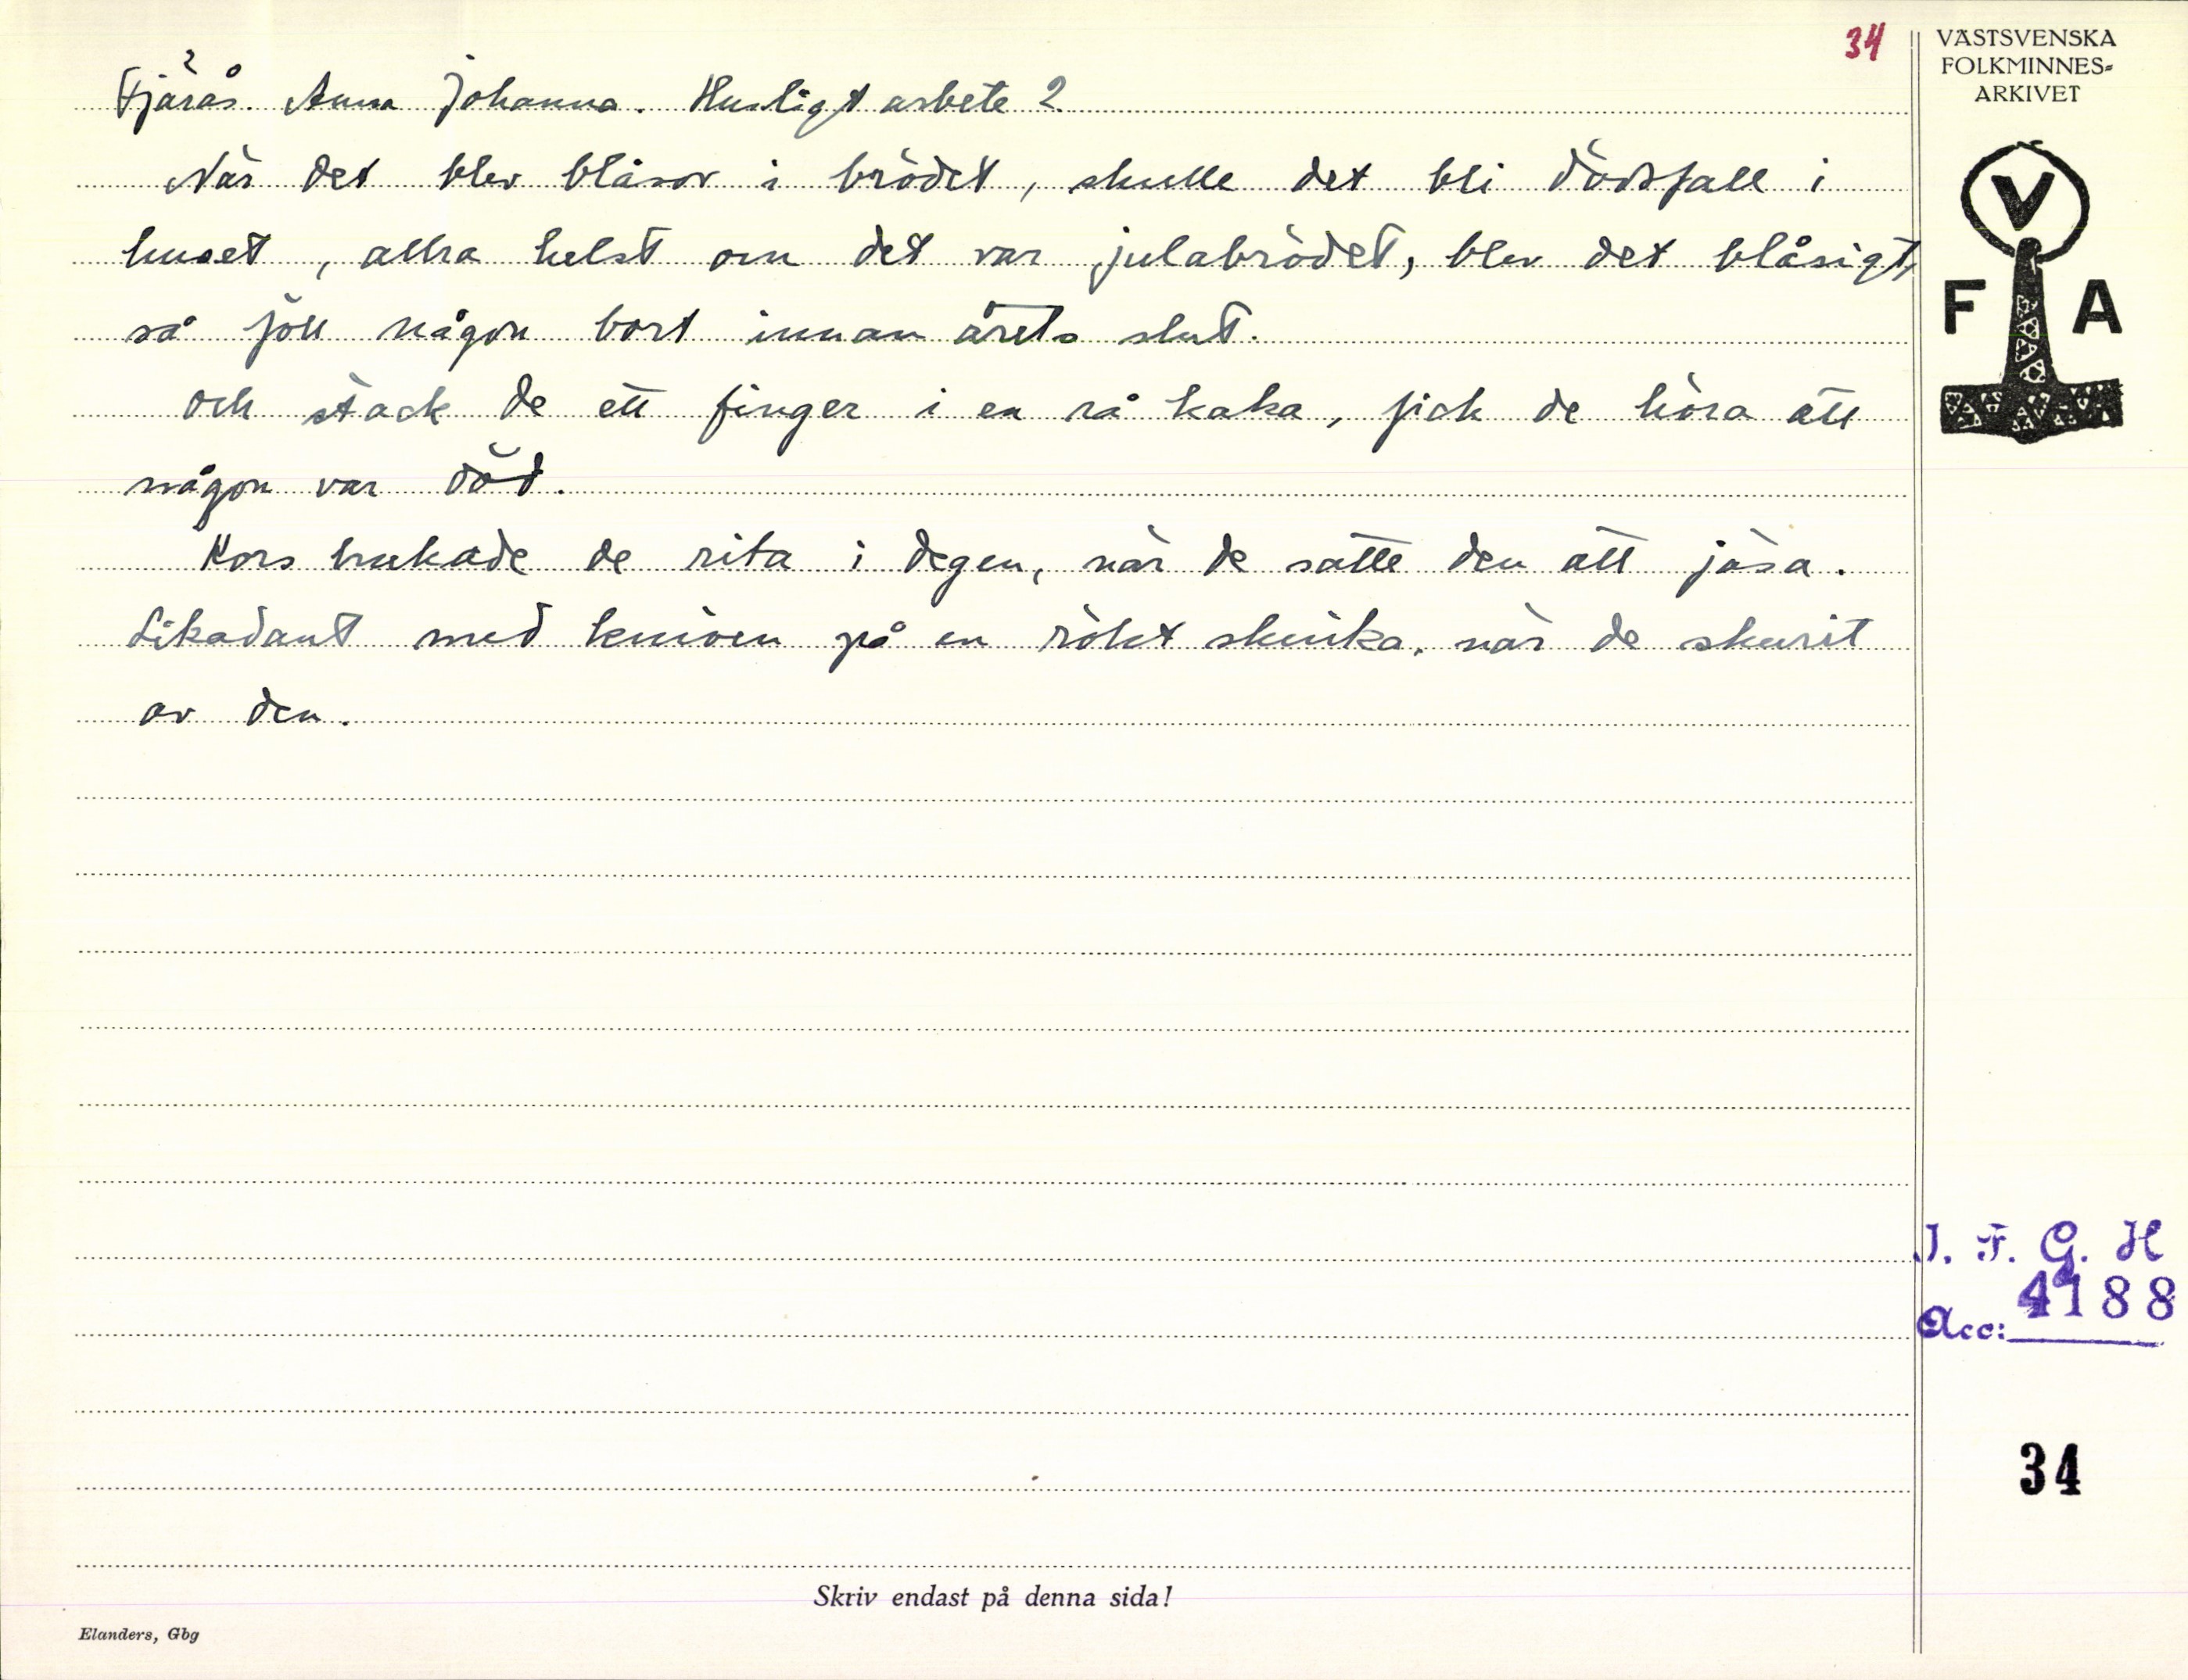 34
VÄSTSVENSKA
FOLKMINNES-
ARKIVET
Fjärås. Anna Johanna. Husligt arbete 2
När det blev blåsor i brödet, skulle det bli dödsfall i
huset, allra helst om det var julabrödet, blev det blåsigt,
så föll någon bort innan årets slut.
och stack de ett finger i en rå kaka, fick de höra att
någon var död.
Kors brukade de rita i degen, när de satte den att jäsa.
Likadant med kniven på en rökt skinka, när de skurit
av den.
V
F A
I. F. G. H
4188
Acc:
34
Skriv endast på denna sida!
Elanders, Gbg